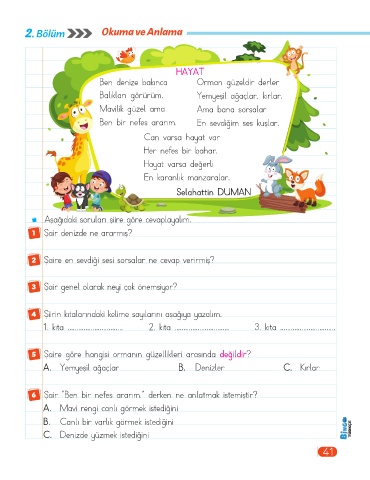 2. Bölüm
Okuma ve Anlama
HAYAT
Ben denize bakınca
Balıkları görürüm.
Mavilik güzel ama
Ben bir nefes ararım.
Orman güzeldir derler
Yemyeşil ağaçlar, kırlar.
Ama bana sorsalar
En sevdiğim ses kuşlar.
Can varsa hayat var
Her nefes bir bahar.
Hayat varsa değerli
En karanlık manzaralar.
Selahattin DUMAN
Aşağıdaki soruları şiire göre cevaplayalım.
1 Şair denizde ne ararmış?
2 Şaire en sevdiği sesi sorsalar ne cevap verirmiş?
3 Şair genel olarak neyi çok önemsiyor?
4 Şiirin kıtalarındaki kelime sayılarını aşağıya yazalım.
1. kıta .............................. 2. kıta .............................. 3. kıta ..............................
5 Şaire göre hangisi ormanın güzellikleri arasında değildir?
A. Yemyeşil ağaçlar B. Denizler C. Kırlar
6 Şair "Ben bir nefes ararım." derken ne anlatmak istemiştir?
A. Mavi rengi canlı görmek istediğini
B. Canlı bir varlık görmek istediğini
C. Denizde yüzmek istediğini
41